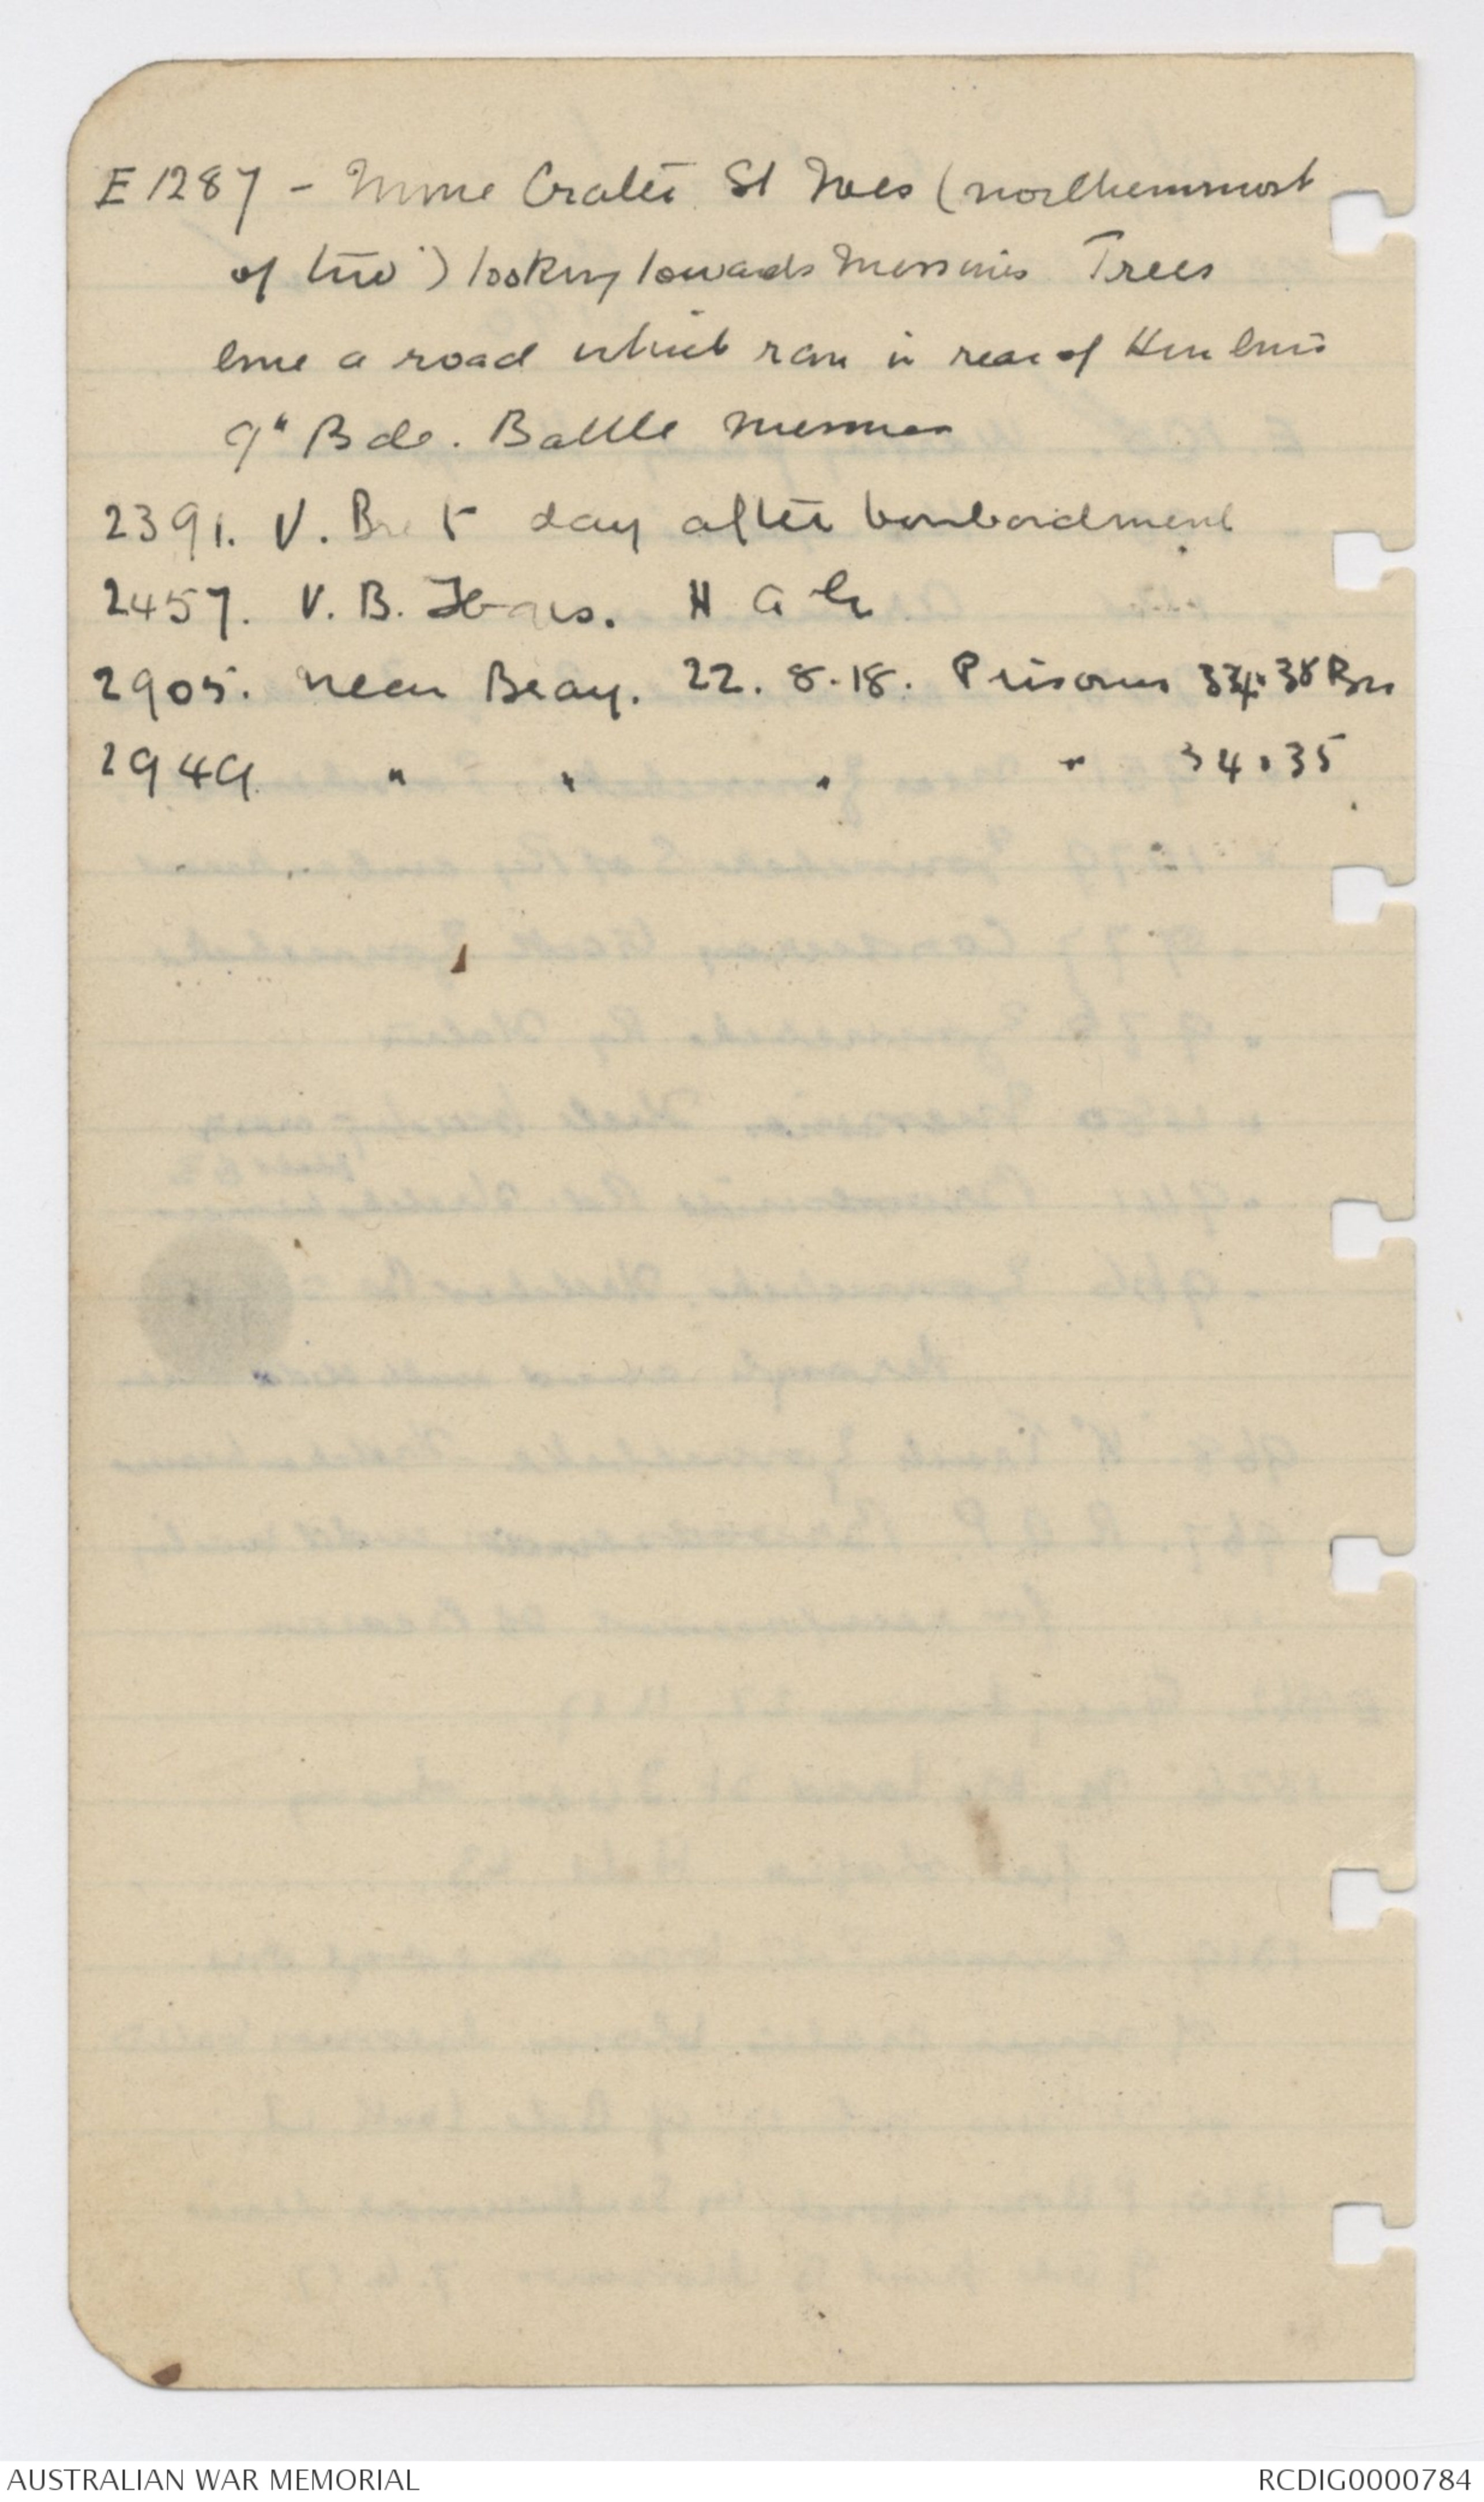 E 1287 - Mine Crater St Ives (northernmost
of two) looking towards Messines Trees
line a road which ran in rear of Hun lines
9" Bde. Battle Messines
2391. V. Bret day after bombardment
2457. V. B.
2905. near Bray. 22. 8. 18. Prisoners 38 Bn
2949 " " " " 34.35
AUSTRALIAN WAR MEMORIAL
RCDIG0000784